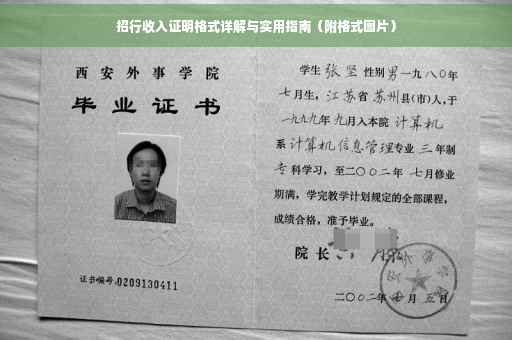 招行收入证明格式详解与实用指南（附格式图片）
西安外事学院
毕业证书
证书编号:0209130411
学生 张坚 性别男一九八〇年
七月生，江苏省苏州县(市)人,于
一九九九年九月入本院 计算机
系计算机信息管理专业 三 年制
专科学习，至二〇〇二年 七月修业
期满，学完教学计划规定的全部课程，
成绩合格，准予毕业。
院长
二〇〇二年 月五日